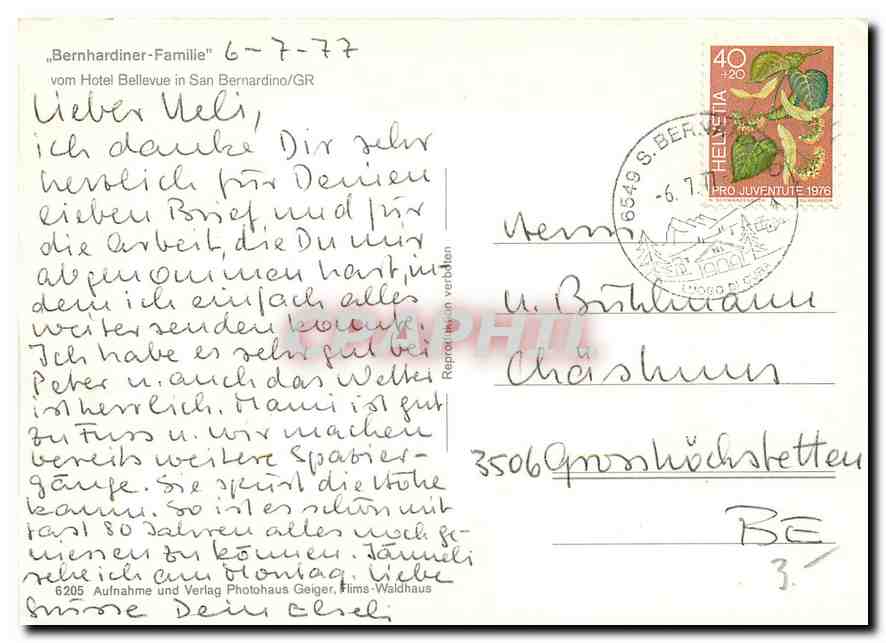 „Bernhardiner-Familie" 6-7-77
vom Hotel Bellevue in San Bernardino/GR
Lieber Ueli,
ich danke Dir sehr
herzlich für Deinen
lieben Brief und für
die Arbeit, die Du mir
abgenommen hast, in-
dem ich einfach alles
weitersenden konnte.
Ich habe es sehr gut bei
Peter u. auch das Wetter
ist herrlich. Mami ist gut
zu Fuss u. wir machen
bereits weitere Spazier-
gänge. Sie spürt die Höhe
kaum. So ist es schön mit
fast 80 Jahren alles noch ge-
niessen zu können. Jänneli
sehe ich am Montag. Liebe
6205 Aufnahme und Verlag Photohaus Geiger, Flims-Waldhaus
Grüsse Dein Elseli
Reproduktion verboten
CPAPHIL
40
+20
HELVETIA
PRO JUVENTUTE 1976
6549 S. BER
-6.7.77
Luogo di cura
Herrn
U. Bühlmann
Chäshuus
3506 Grosshöchstetten
BE
3.-